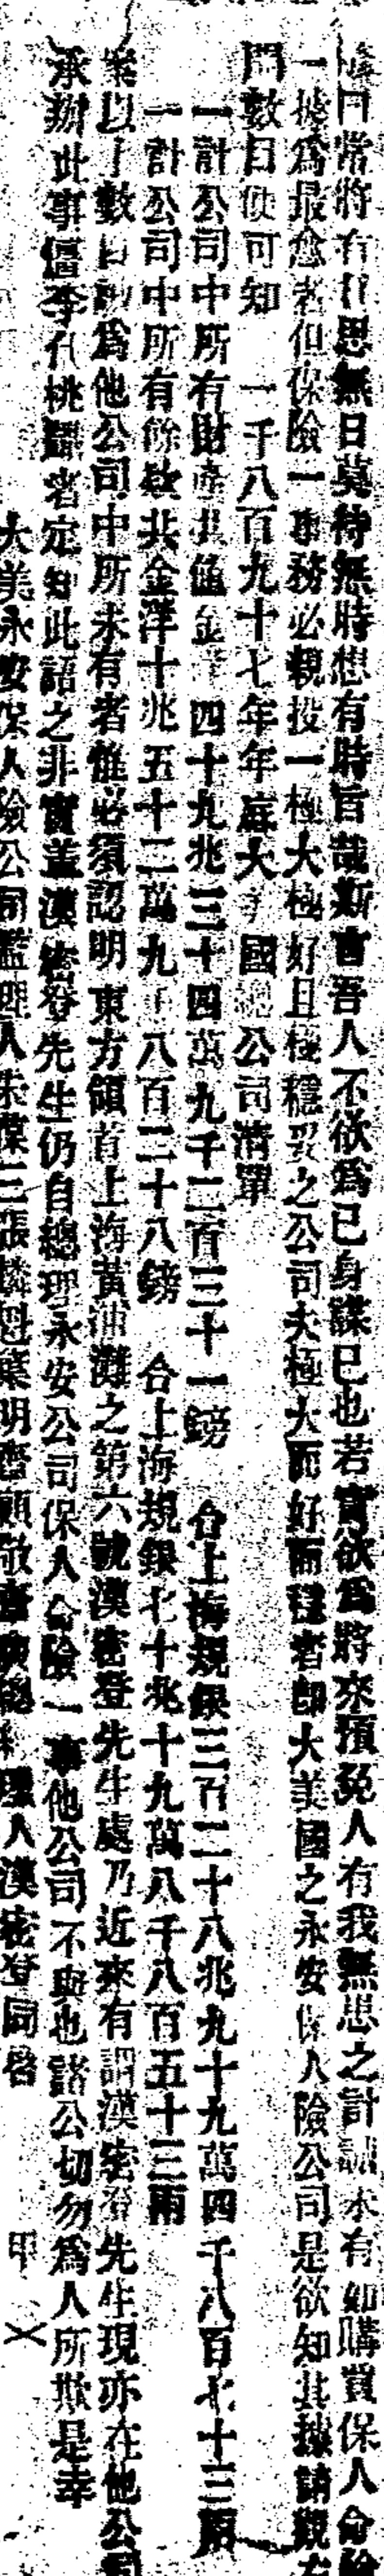 常將有日思無日莫待無時想有時旨哉斯言吾人不欲爲己身謀已也若實欲爲將來預免人有我無患之計誠未有如購買保人命險
一擧爲最愈者但保險一事務必親投一極大極好且極穩妥之公司夫極大而好而穩者卽大美國之永安保人險公司是欲知其據請觀左
開數目便可知　一千八百九十七年年底大美國總公司淸單
一計公司中所有財產共值金洋四十九兆三十四萬九千二百三十一鎊　合上海規銀三百二十八兆九十九萬四千八百七十三兩
一計公司中所有餘款共金洋十兆五十二萬九千八百三十八鎊　合上海規銀七十兆十九萬八千八百五十三兩
案以上數目爲他公司中所未有者惟必須認明東方領首上海黃浦灘之第六號漢密登先生處乃近來有謂漢密登先生現亦在他公司
承辦此事僵李代桃謠者定知此語之非實蓋漢密登先生仍自總理永安公司保人命險一事他公司不與也諸公切勿爲人所欺是幸
大美永安保人險公司監理人朱葆三張麟魁葉明齋顧敬齋總經理人漢密登同啓　甲